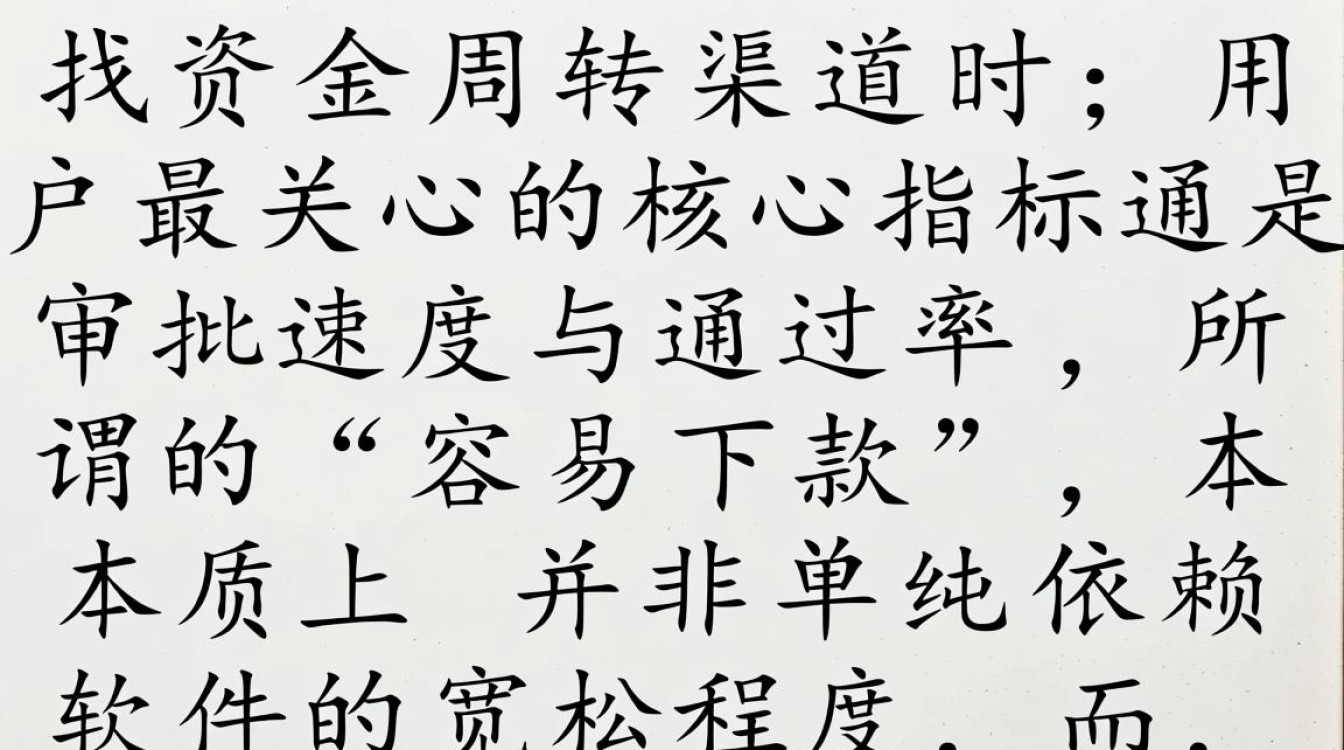 找资金周转渠道时；用
户最关心的核心指标通是
审批速度与通过率，所
谓的“容易下款”，本
本质上 并非单纯依赖
软件的宽松程度，而，